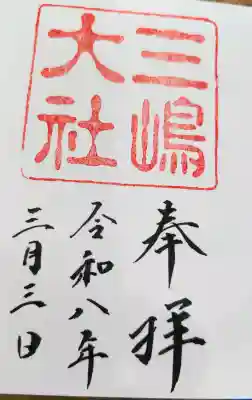 三嶋
大社
奉拝
令和八年
三月三日